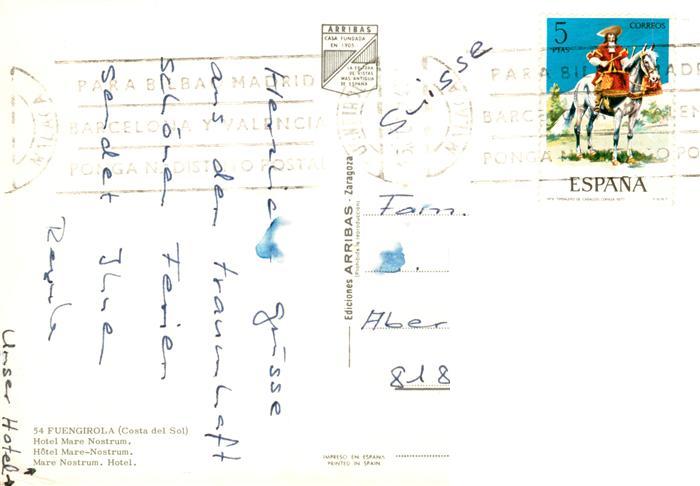 ARRIBAS
CASA FUNDADA
EN 1905
LA EDITORA
DE VISTAS
MAS ANTIGUA
DE ESPAÑA
5
PTAS
CORREOS
ESPAÑA
PARA BILBAO MADRID
BARCELONA Y VALENCIA
PONGA N. DISTRITO POSTAL
Suisse
Herzliche grüsse
aus den traumhaft
schönen Ferien
sendet Ihre
Regula
Unser Hotel
Fam.
Aber
818
Ediciones ARRIBAS - Zaragoza
(Prohibida la reproducción)
54 FUENGIROLA (Costa del Sol)
Hotel Mare Nostrum.
Hôtel Mare-Nostrum.
Mare Nostrum. Hotel.
IMPRESO EN ESPAÑA
PRINTED IN SPAIN